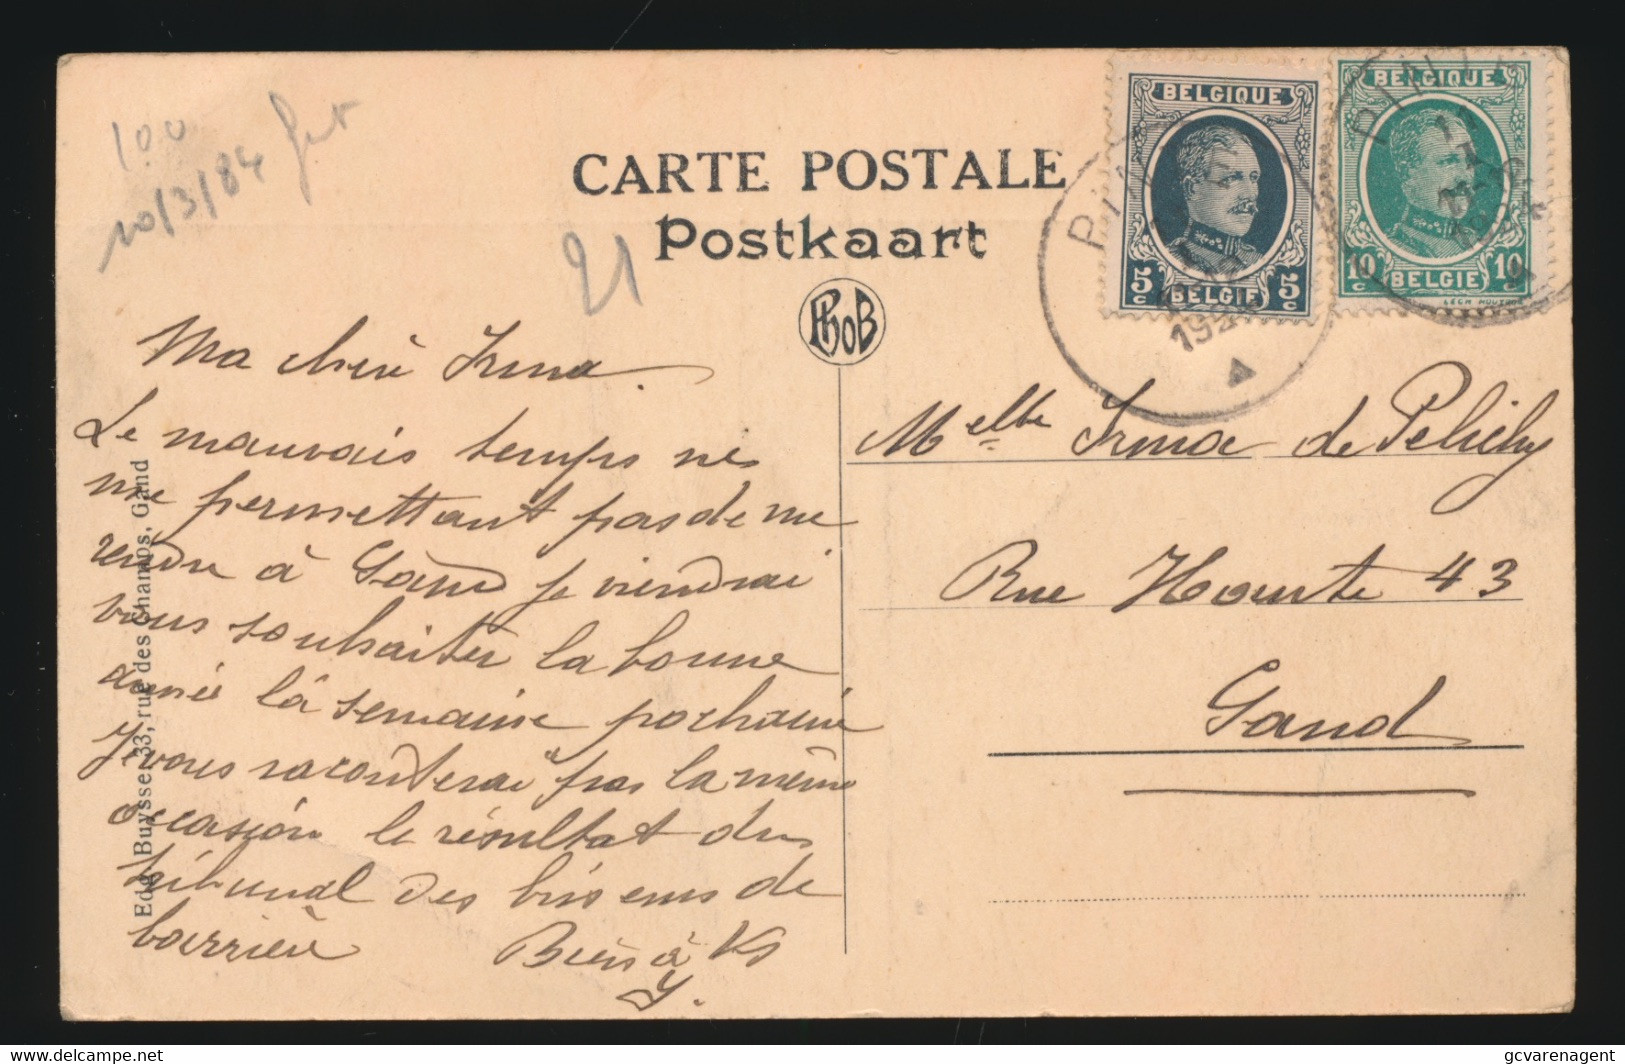 100
10/3/84
21
CARTE POSTALE
Postkaart
PhoB
BELGIQUE
5c BELGIË 5c
BELGIQUE
10c BELGIË 10c
PINTE
Ma chère Irma.
Le mauvais temps ne
me permettant pas de me
rendre à Gand je viendrai
vous souhaiter la bonne
année la semaine prochaine
Je vous raconterai pas la même
occasion le résultat du
tribunal des briseurs de
barrière
Bien à Vs
Y.
Melle Irma de Pelichy
Rue Haute 43
Gand
Edg. Buysse, 33, rue des Champs, Gand
© gcvarenagent